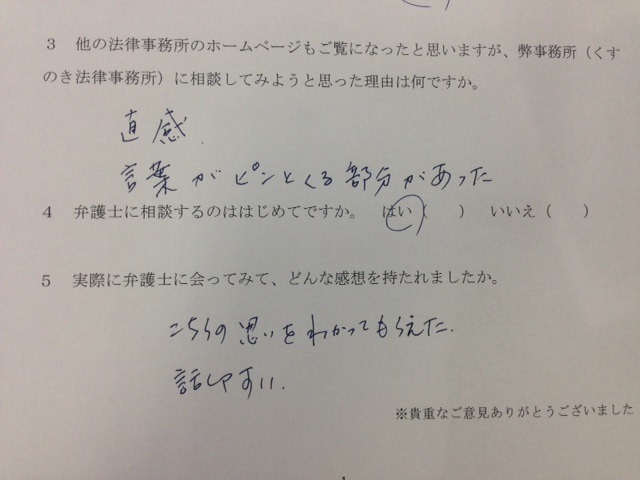 ３　他の法律事務所のホームページもご覧になったと思いますが、弊事務所（くす
のき法律事務所）に相談してみようと思った理由は何ですか。
直感.
言葉がピンとくる部分があった
４　弁護士に相談するのははじめてですか。　はい（　　）　いいえ（　　）
５　実際に弁護士に会ってみて、どんな感想を持たれましたか。
こちらの思いをわかってもらえた.
話しやすい.
※貴重なご意見ありがとうございました